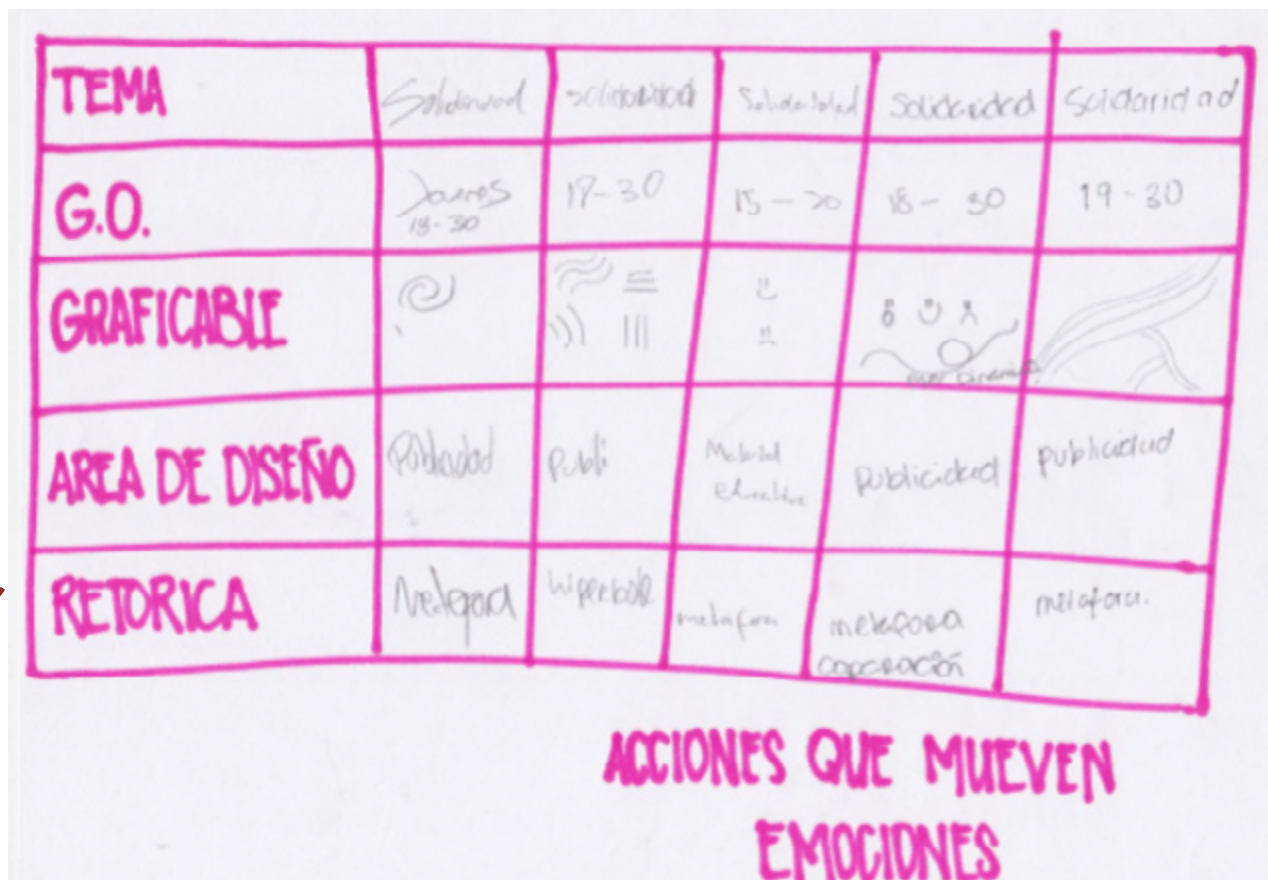 TEMA Solidaridad Solidaridad Solidaridad Solidaridad Solidaridad
G.O. Jovenes 18-30 17-30 15-20 18-30 19-30
GRAFICABLE
AREA DE DISEÑO Publicidad Publi Material Educativo publicidad publicidad
RETORICA Metafora hiperbole metafora metafora metafora.
ACCIONES QUE MUEVEN
EMOCIONES